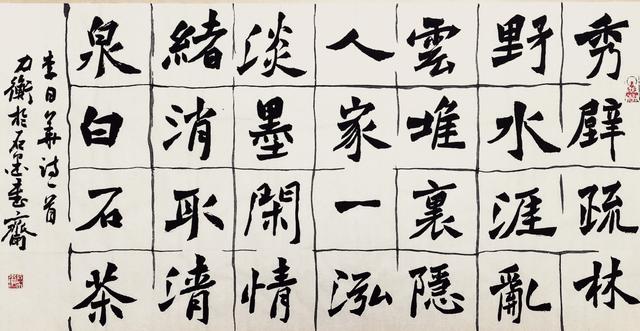 秀壁疏林
野水涯亂
雲堆裏隱
人家一泓
淡墨閑情
緒消取清
泉白石茶
李日華诗一首
力衡於石墨書齋